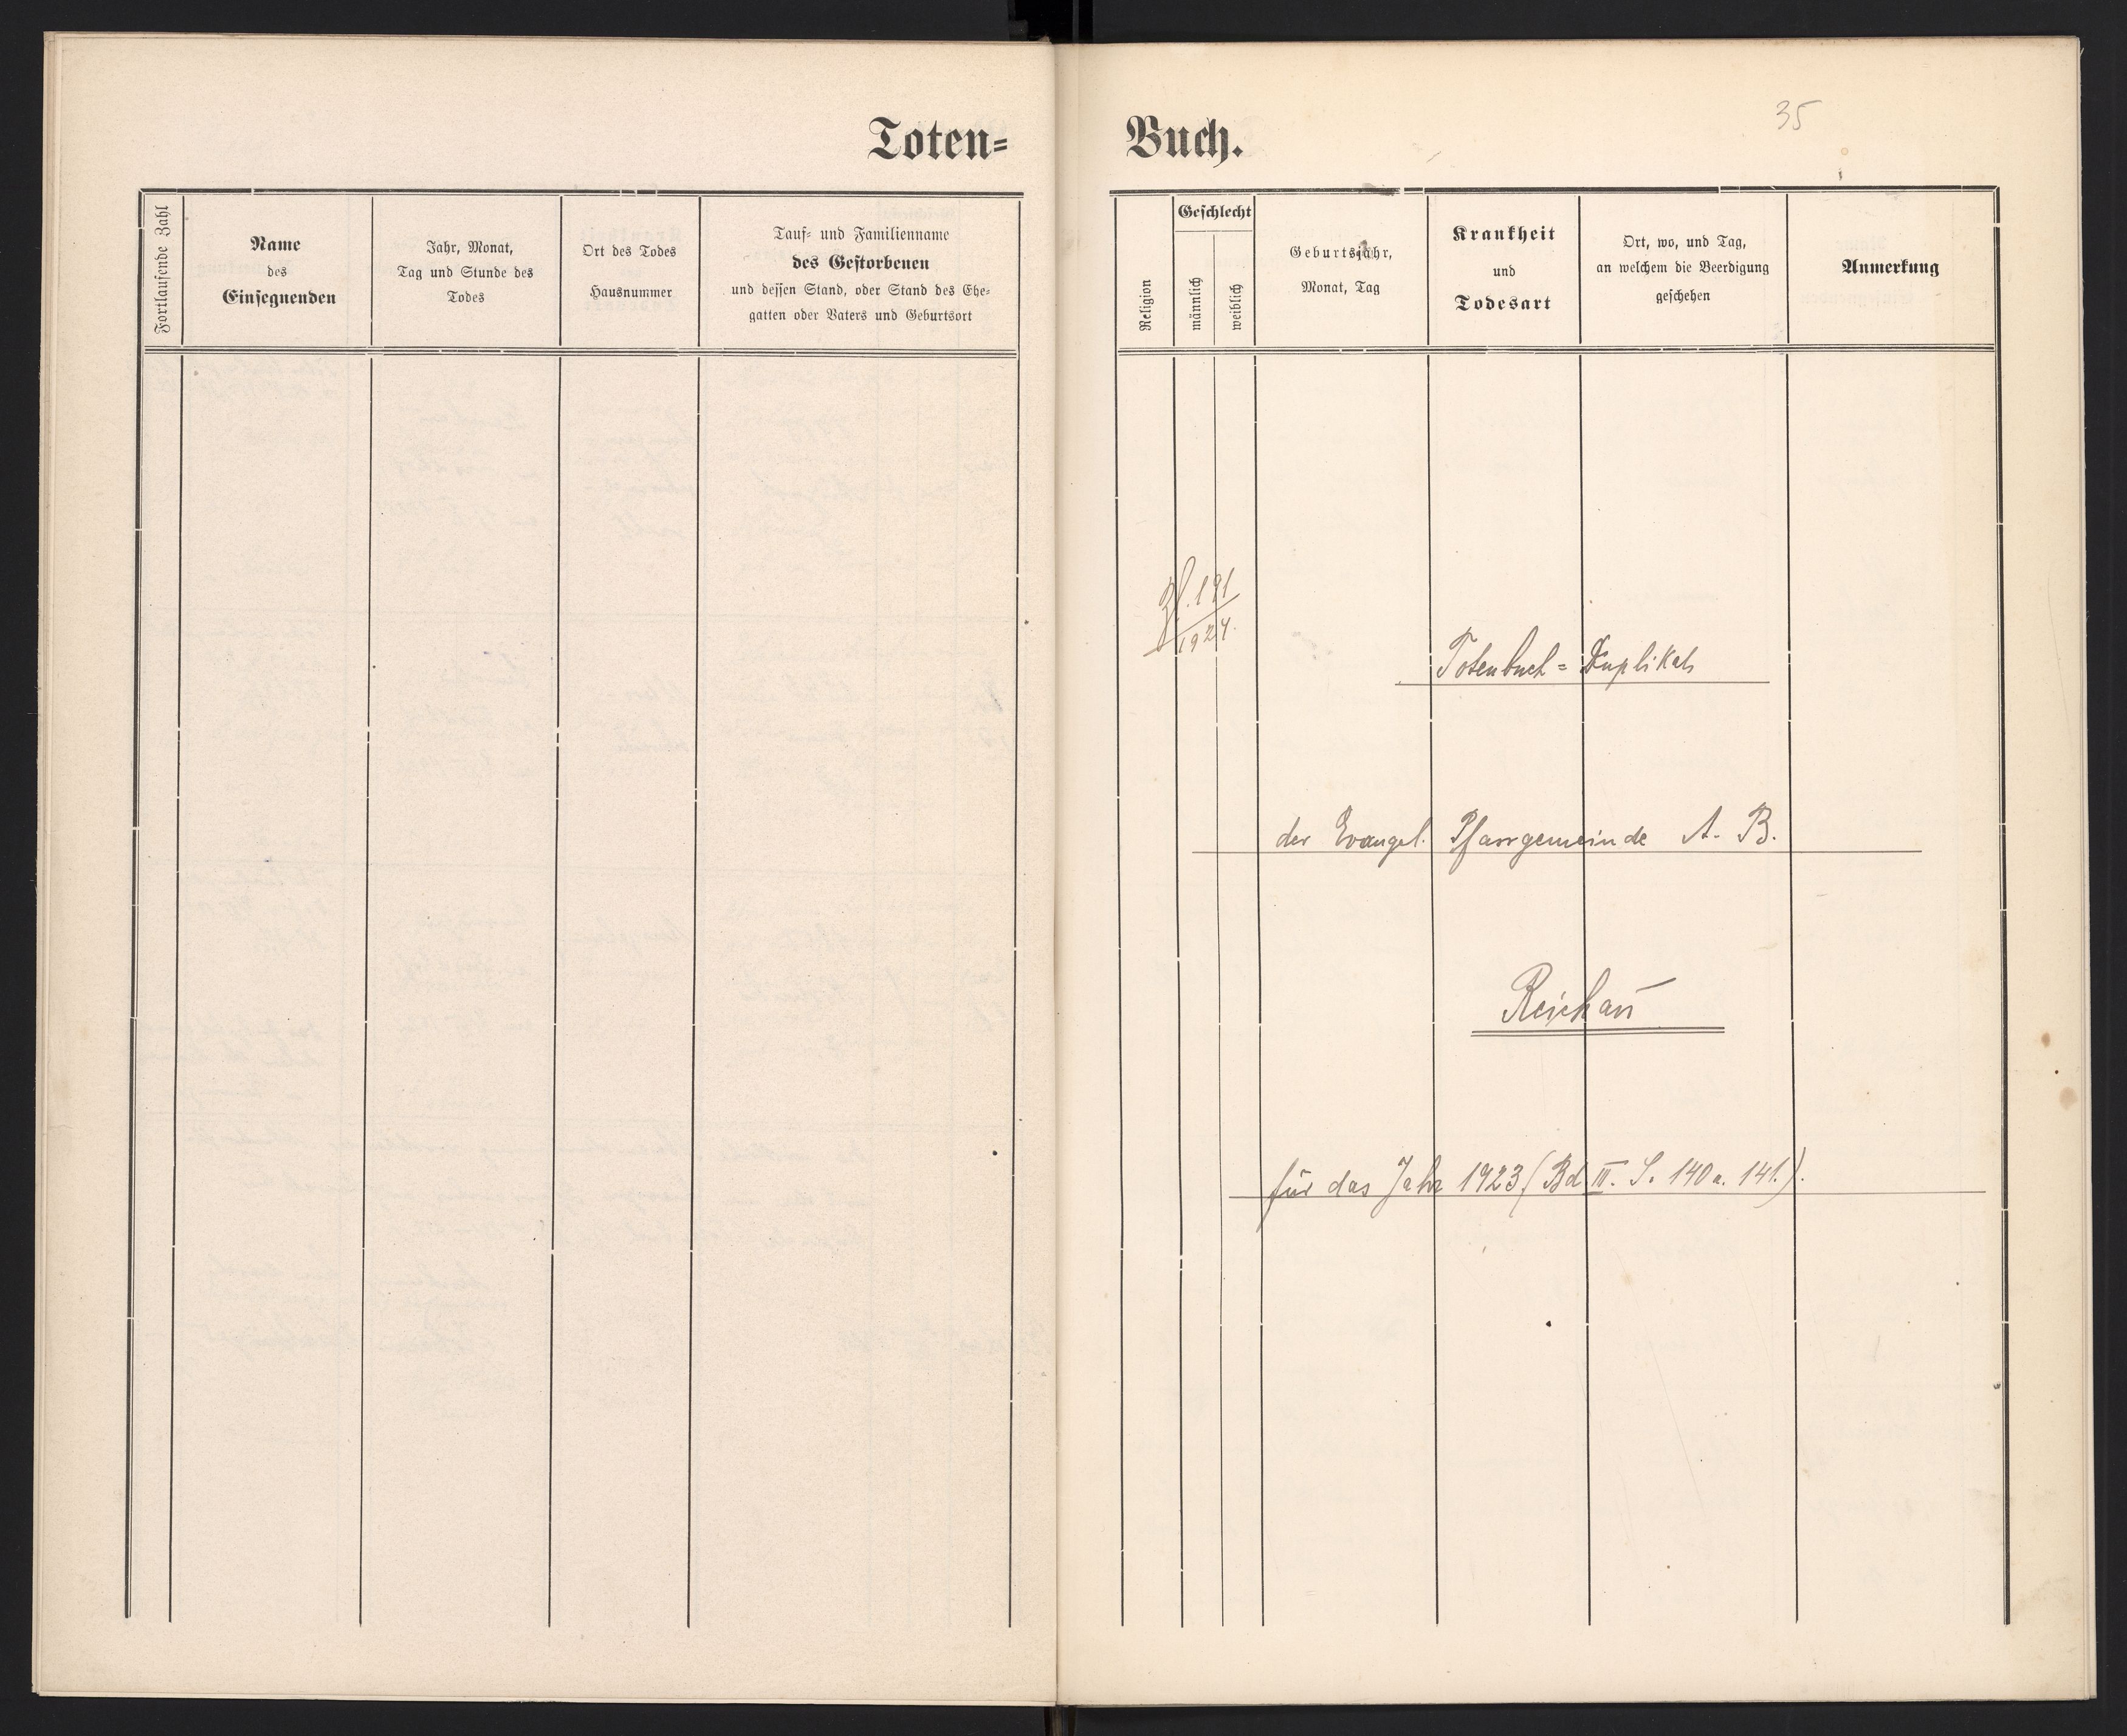 Toten=
Fortlaufende Zahl
Name
des
Einsegnenden
Jahr, Monat,
Tag und Stunde des
Todes
Ort des Todes
Hausnummer
Tauf= und Familienname
des Gestorbenen
und dessen Stand, oder Stand des Ehe=
gatten oder Vaters und Geburtsort
35
Buch.
Religion
Geschlecht
männlich
weiblich
Geburtsjahr,
Monat, Tag
Krankheit
und
Todesart
Ort, wo, und Tag,
an welchem die Beerdigung
geschehen
Anmerkung
191
1924.
Totenbuch = Duplikat
der Evangel. Pfarrgemeinde A. B.
Reichau
für das Jahr 1923 (Bd III. S. 140 u. 141.).